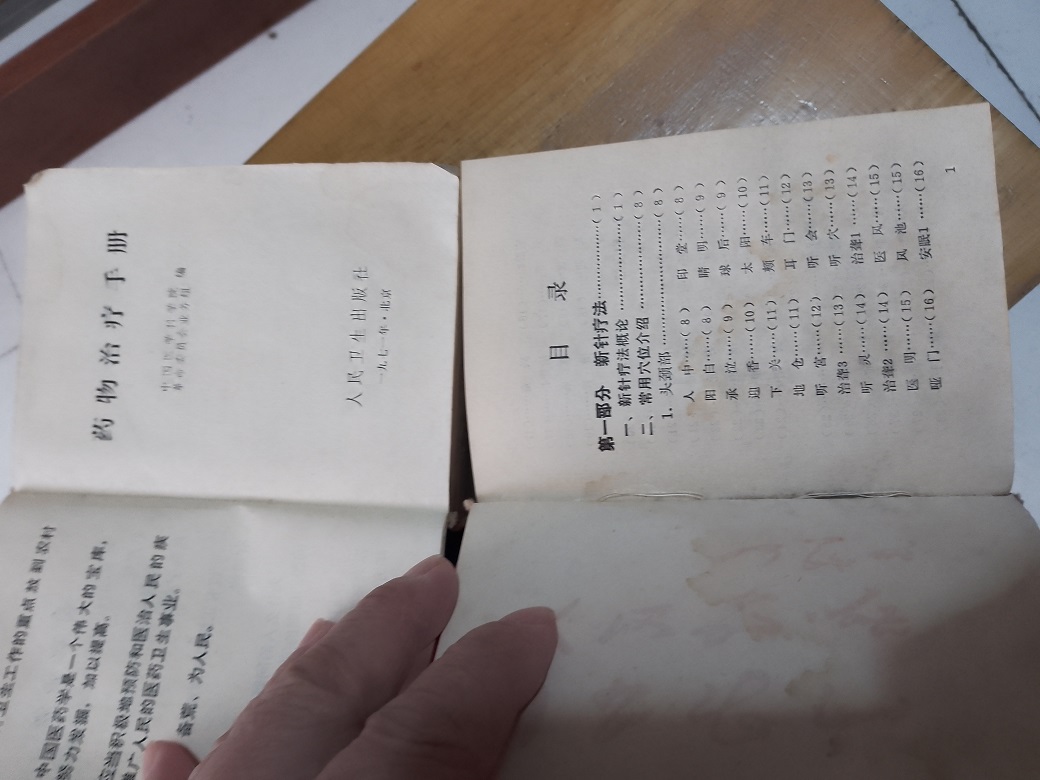 卫生工作的重点放到农村
中国医药学是一个伟大的宝库，
努力发掘，加以提高。
应当积极地预防和医治人民的疾
推广人民的医药卫生事业。
备荒、为人民。
药物治疗手册
中国医学科学院
革命委员会业务组 编
人民卫生出版社
一九七一年·北京
目 录
第一部分 新针疗法……………(1)
一、新针疗法概论……………(1)
二、常用穴位介绍……………(8)
1. 头颈部……………(8)
人 中……(8) 印 堂……(8)
阳 白……(8) 睛 明……(9)
承 泣……(9) 球 后……(9)
迎 香……(10) 太 阳……(10)
下 关……(11) 颊 车……(11)
地 仓……(11) 耳 门……(12)
听 宫……(12) 听 会……(13)
治聋3……(13) 听 穴……(13)
听 灵……(14) 治聋1……(14)
治聋2……(14) 医 风……(15)
医 明……(15) 风 池……(15)
哑 门……(16) 安眠1……(16)
1